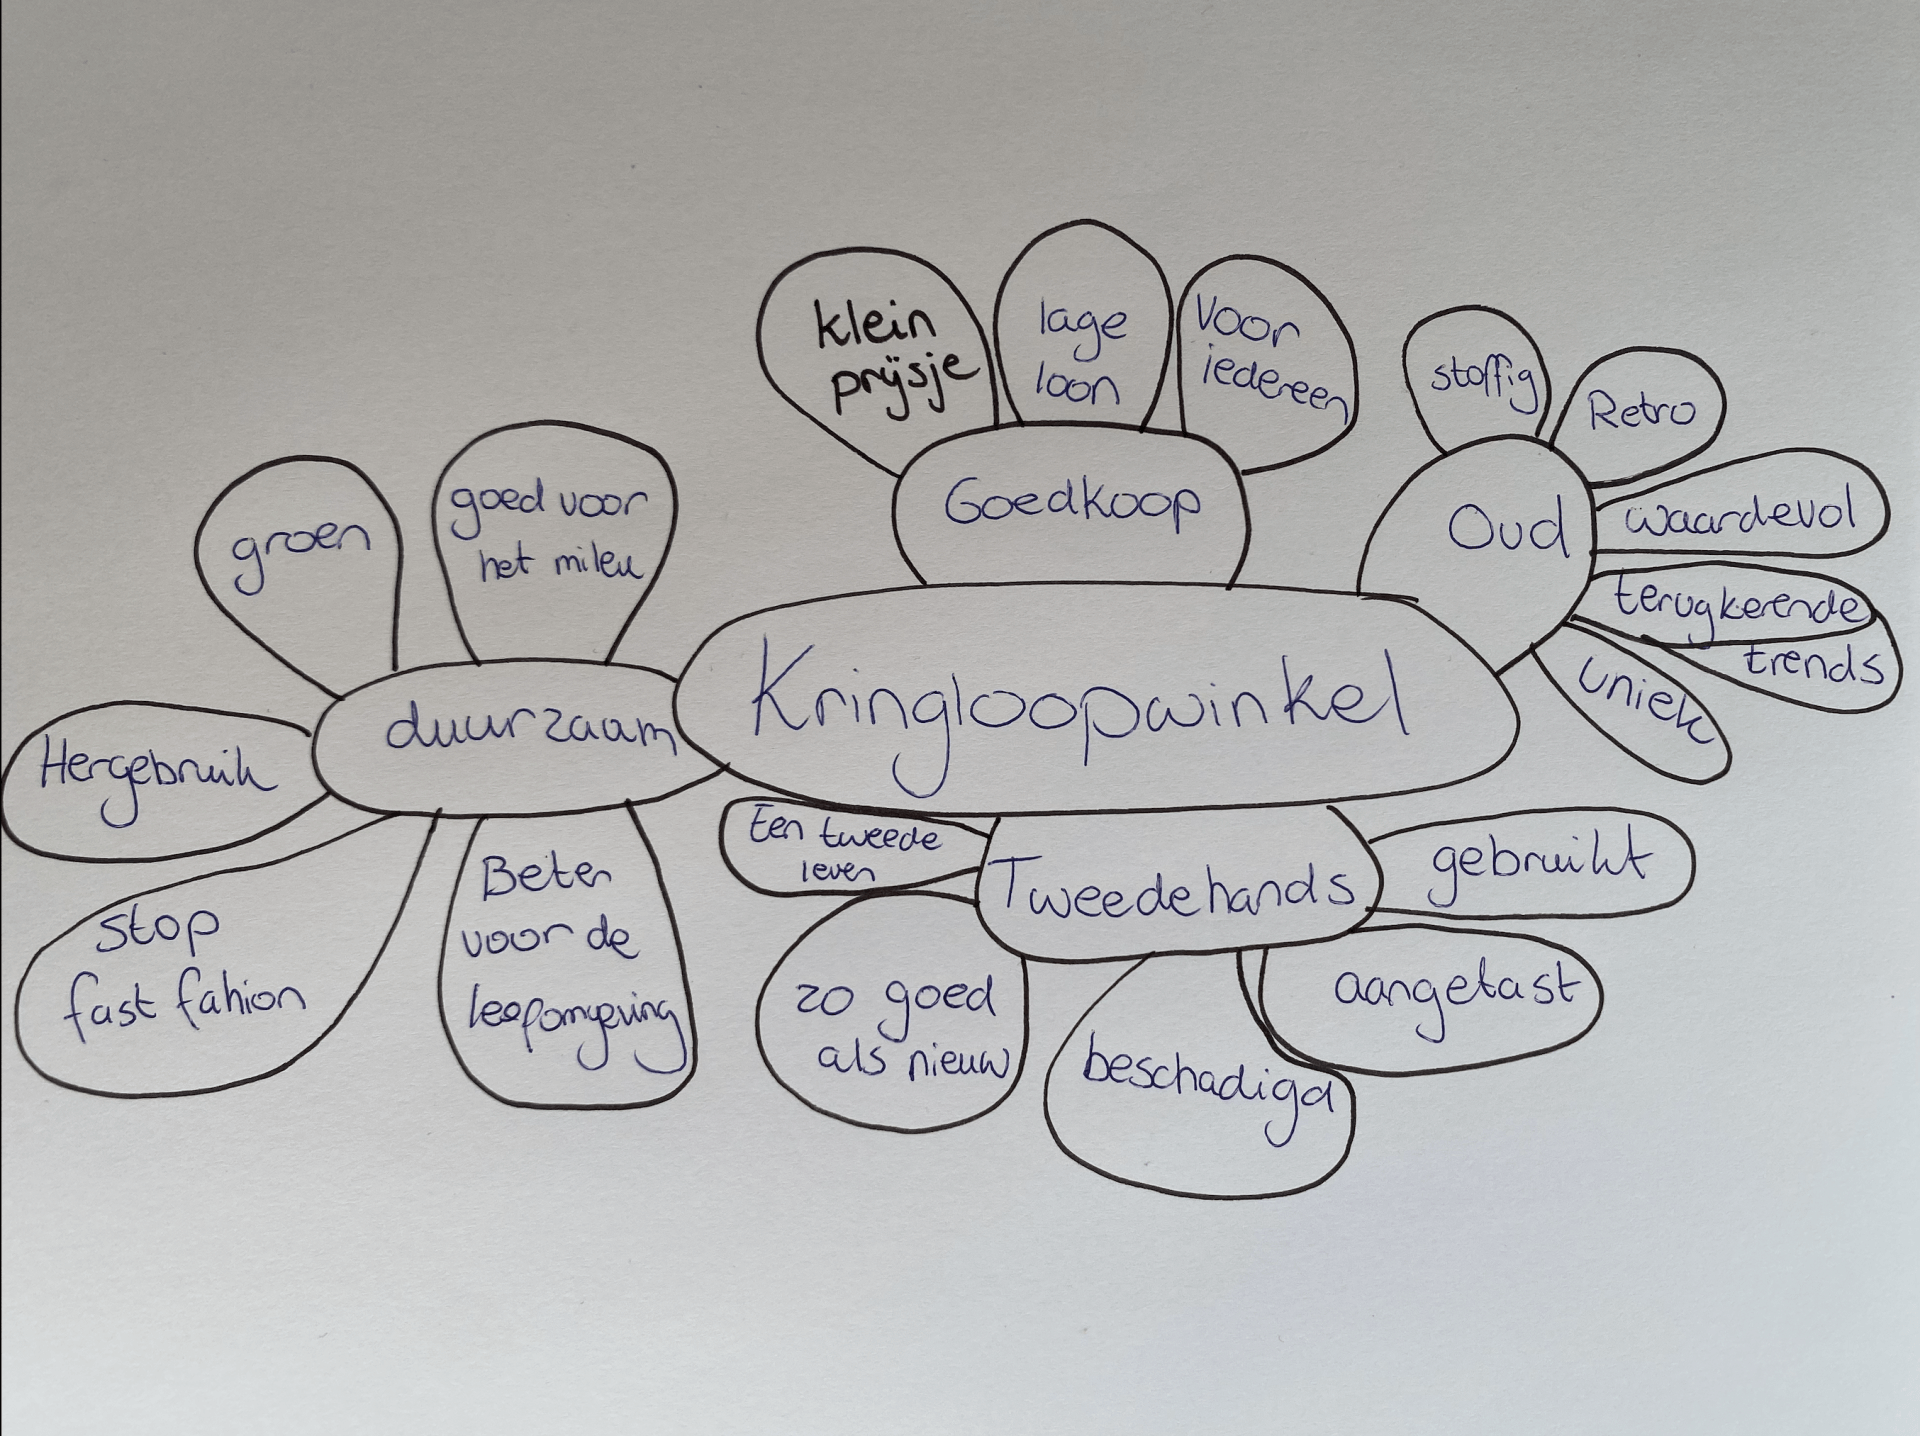 klein
prijsje
lage
loon
Voor
iedereen
stoffig
Retro
waardevol
terugkerende
trends
uniek
Oud
Goedkoop
groen
goed voor
het mileu
Kringloopwinkel
duurzaam
Hergebruik
stop
fast fahion
Beter
voor de
leefomgeving
Een tweede
leven
Tweedehands
gebruikt
aangetast
zo goed
als nieuw
beschadigd